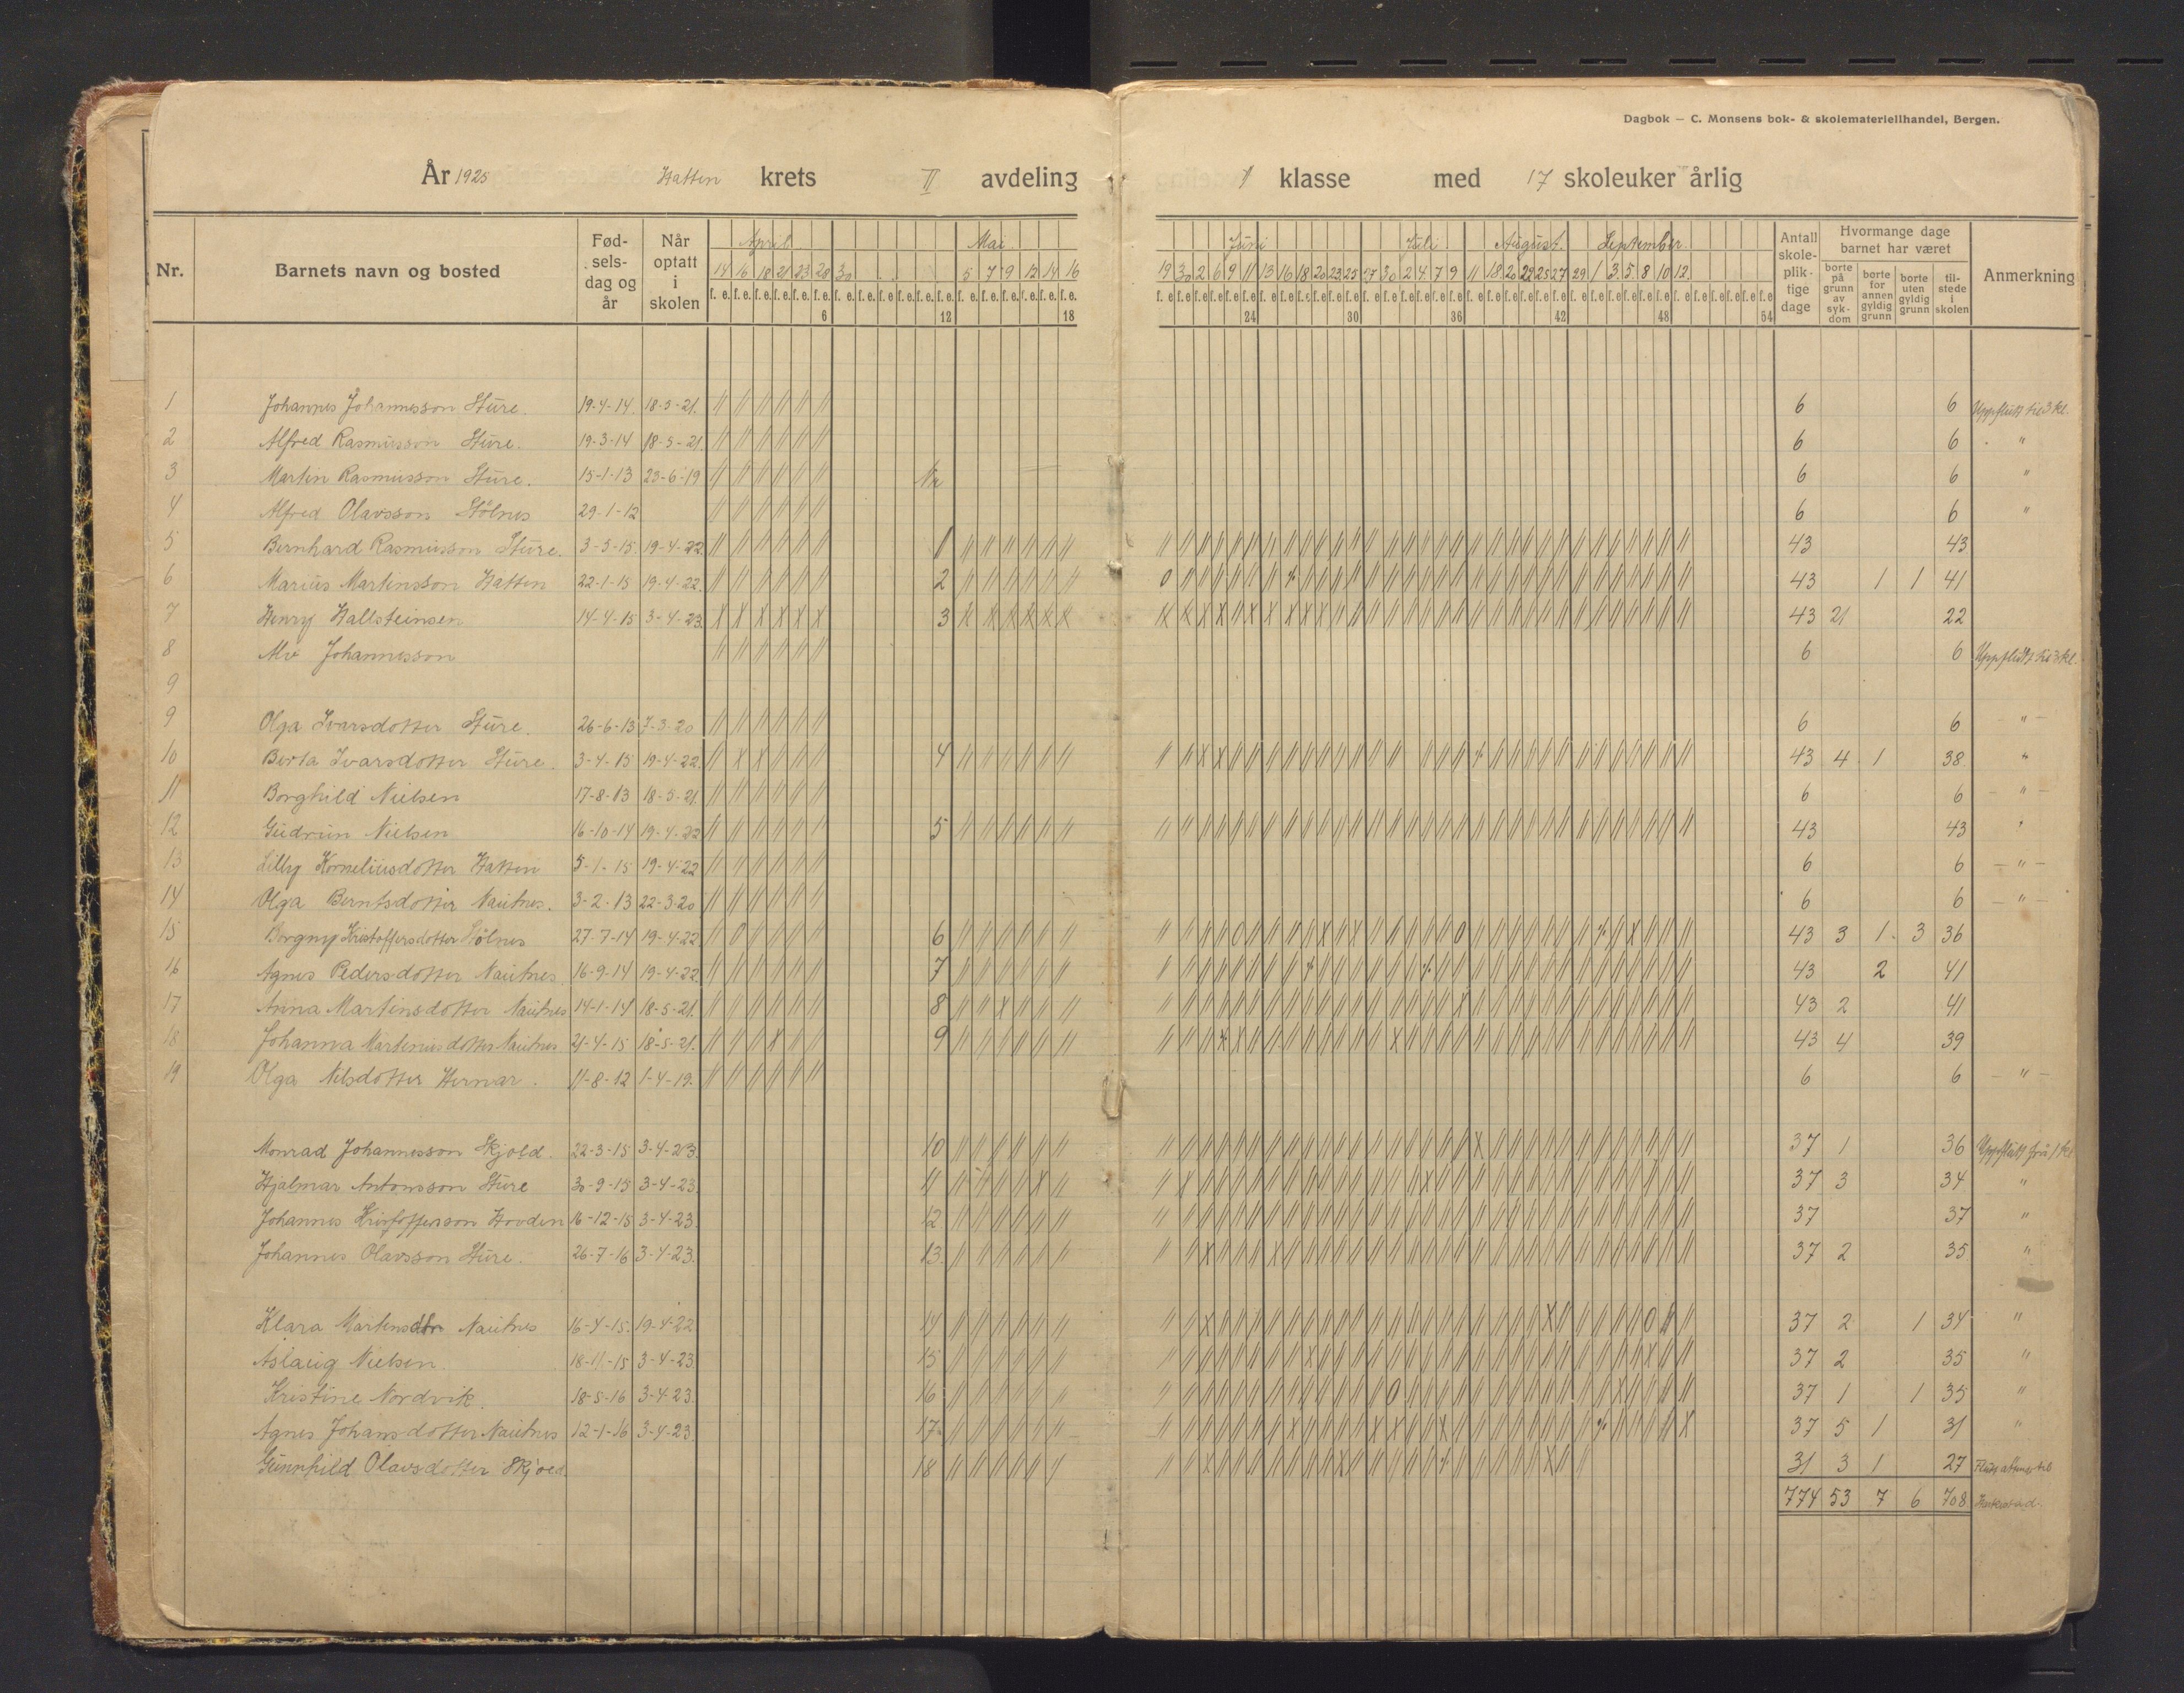 Dagbok — C. Monsens bok- & skolemateriellhandel, Bergen.
År 1925 Hatten krets II avdeling
klasse med 17 skoleuker årlig
Nr. Barnets navn og bosted Fødselsdag og år Når optatt i skolen April Mai
14 16 18 21 23 28 30 5 7 9 12 14 16
6 12 18
Juni Juli August September
19 30 2 6 9 11 13 16 18 20 23 25 27 30 2 4 7 9 11 18 20 22 25 27 29 1 3 5 8 10 12
24 30 36 42 48 54
Antall skolepliktige dage Hvormange dage barnet har været Anmerkning
borte på grunn av sykdom borte for annen gyldig grunn borte uten gyldig grunn tilstede i skolen
1 Johannes Johannesson Sture. 19-4-14. 18-5-21. 6 6 Uppflutt til 3 kl.
2 Alfred Rasmusson Sture. 19-3-14 18-5-21. 6 6 "
3 Martin Rasmusson Sture. 15-1-13 23-6-19 Nr 6 6 "
4 Alfred Olavsson Stölnes 29-1-12 6 6 "
5 Bernhard Rasmusson Sture. 3-3-15. 19-4-22. 1 43 43
6 Marius Martinsson Hatten 22-1-15 19-4-22. 2 43 1 1 41
7 Henry Hallsteinsen 14-4-15 3-4-23. 3 43 21 22
8 Johannesson 6 6 Uppflutt til 3 kl.
9
9 Olga Ivarsdotter Sture. 26-6-13 7-3-20 6 6 "
10 Berta Ivarsdotter Sture. 3-4-15 19-4-22. 4 43 4 1 38 "
11 Borghild Nielsen 17-8-13 18-5-21. 6 6 "
12 Gudrun Nielsen 16-10-14 19-4-22 5 43 43
13 Lilly Korneliusdotter Hatten 5-1-15 19-4-22 6 6 "
14 Olga Berntsdotter Nautnes. 3-2-13 22-3-20 6 6 "
15 Borgny Kristoffersdotter Stölnes 27-7-14 19-4-22 6 43 3 1. 3 36
16 Agnes Pedersdotter Nautnes. 16-9-14 19-4-22. 7 43 2 41
17 Anna Martinsdotter Nautnes 14-1-14 18-5-21. 8 43 2 41
18 Johanna Martinusdotter Nautnes 21-4-15 18-5-21. 9 43 4 39
19 Olga Nilsdotter Hernar. 11-8-12 1-4-19. 6 6 "
Monrad Johannesson Skjold. 22-3-15 3-4-23. 10 37 1 36 Uppflutt frå 1 kl
Hjalmar Antonsson Sture 30-9-15 3-4-23. 11 37 3 34 "
Johannes Kristoffersson Hovden 16-12-15 3-4-23. 12 37 37 "
Johannes Olavsson Sture. 26-7-16 3-4-23. 13. 37 2 35 "
Klara Martensdtr Nautnes 16-4-15. 19-4-22 14 37 2 1 34 "
Aslaug Nielsen. 18-11-15 3-4-23 15 37 2 35 "
Kristine Nordvik. 18-5-16 3-4-23. 16 37 1 1 35 "
Agnes Johansdotter Nautnes 12-1-16 3-4-23. 17 37 5 1 31 "
Gunnhild Olavsdotter 18 31 3 1 27 Flutt attende til
774 53 7 6 708